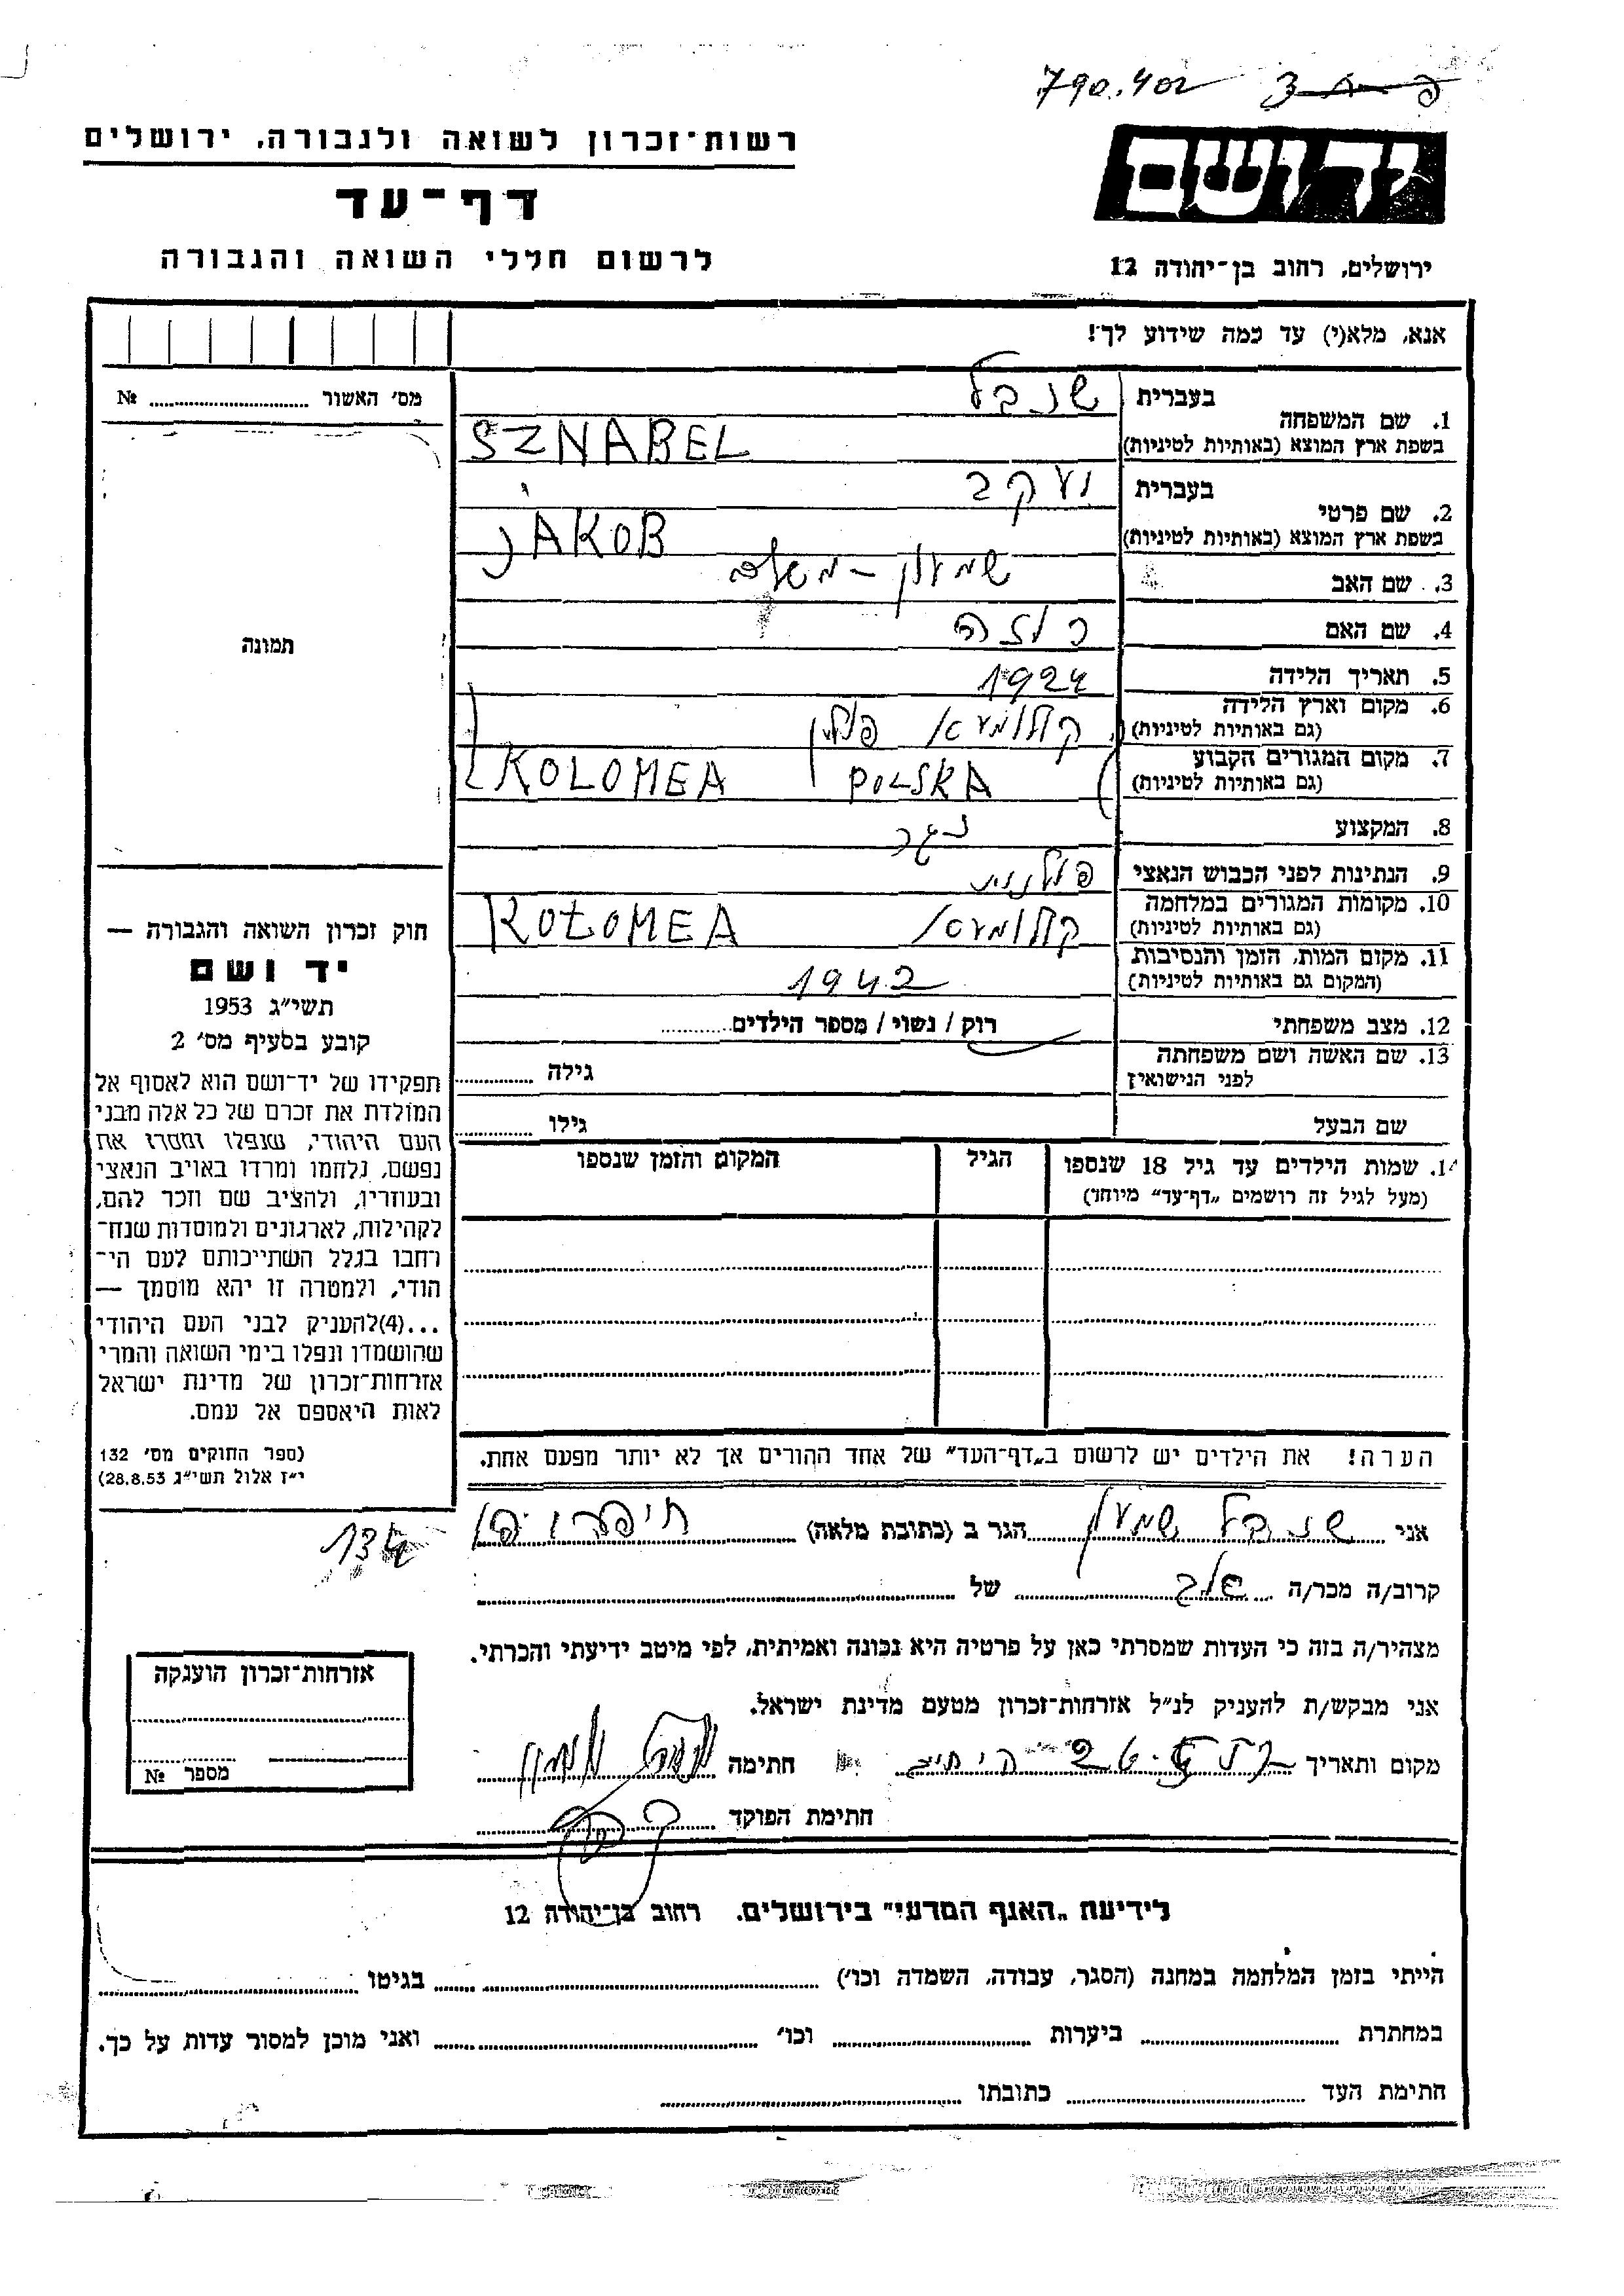 790.402
רשות־זכרון לשואה ולגבורה, ירושלים
יד ושם
דף־עד
לרשום חללי השואה והגבורה
ירושלים, רחוב בן־יהודה 12
אנא, מלא(י) עד כמה שידוע לך!
מס׳ האשור № 
1. שם המשפחה בעברית שנבל
בשפת ארץ המוצא (באותיות לטיניות) SZNABEL
2. שם פרטי בעברית יעקב
בשפת ארץ המוצא (באותיות לטיניות) JAKOB
3. שם האב שמעון - משולם
4. שם האם רוזה
5. תאריך הלידה 1924
6. מקום וארץ הלידה (גם באותיות לטיניות) קולומעא פולין
7. מקום המגורים הקבוע (גם באותיות לטיניות) KOLOMEA POLSKA
8. המקצוע נגר
9. הנתינות לפני הכבוש הנאצי פולנית
10. מקומות המגורים במלחמה (גם באותיות לטיניות) קולומעא KOŁOMEA
11. מקום המות, הזמן והנסיבות (המקום גם באותיות לטיניות) 1942
12. מצב משפחתי רוק / נשוי / מספר הילדים
13. שם האשה ושם משפחתה לפני הנישואין גילה
שם הבעל גילו
14. שמות הילדים עד גיל 18 שנספו הגיל המקום והזמן שנספו
(מעל לגיל זה רושמים „דף־עד” מיוחד)
הערה! את הילדים יש לרשום ב„דף־העד” של אחד ההורים אך לא יותר מפעם אחת.
תמונה
חוק זכרון השואה והגבורה —
יד ושם
תשי״ג 1953
קובע בסעיף מס׳ 2
תפקידו של יד־ושם הוא לאסוף אל
המולדת את זכרם של כל אלה מבני
העם היהודי, שנפלו ומסרו את
נפשם, נלחמו ומרדו באויב הנאצי
ובעוזריו, ולהציב שם וזכר להם,
לקהילות, לארגונים ולמוסדות שנח־
רחבו בגלל השתייכותם לעם הי־
הודי, ולמטרה זו יהא מוסמך —
...(4)להעניק לבני העם היהודי
שהושמדו ונפלו בימי השואה והמרי
אזרחות־זכרון של מדינת ישראל
לאות היאספם אל עמם.
(ספר החוקים מס׳ 132
י״ז אלול תשי״ג 28.8.53)
אני שנבל שמעון הגר ב (כתובת מלאה)
קרוב/ה מכר/ה של
מצהיר/ה בזה כי העדות שמסרתי כאן על פרטיה היא נכונה ואמיתית, לפי מיטב ידיעתי והכרתי.
אני מבקש/ת להעניק לנ״ל אזרחות־זכרון מטעם מדינת ישראל.
מקום ותאריך חתימה
חתימת הפוקד
אזרחות־זכרון הוענקה
מספר №
לידיעת „האגף המדעי” בירושלים. רחוב בן־יהודה 12
הייתי בזמן המלחמה במחנה (הסגר, עבודה, השמדה וכו׳) בגיטו
במחתרת ביערות וכו׳ ואני מוכן למסור עדות על כך.
חתימת העד כתובתו